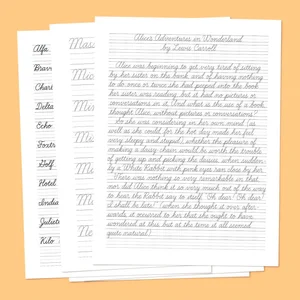 Alfa
Bravo
Charl
Delta
Echo
Foxtr
Golf
Hotel
India
Juliett
Kilo
Mass
Mic
Mi
Mi
Alice's Adventures in Wonderland
by Lewis Carroll
Alice was beginning to get very tired of sitting
by her sister on the bank, and of having nothing
to do: once or twice she had peeped into the book
her sister was reading, but it had no pictures or
conversations in it, "And what is the use of a book,"
thought Alice, "without pictures or conversations?"
So she was considering in her own mind (as
well as she could, for the hot day made her feel
very sleepy and stupid), whether the pleasure of
making a daisy-chain would be worth the trouble
of getting up and picking the daisies, when suddenly
by a White Rabbit with pink eyes ran close by her.
There was nothing so very remarkable in that,
nor did Alice think it so very much out of the way
to hear the Rabbit say to itself, "Oh dear! Oh dear!
I shall be late!" (when she thought it over after-
wards, it occurred to her that she ought to have
wondered at this, but at the time it all seemed
quite natural)